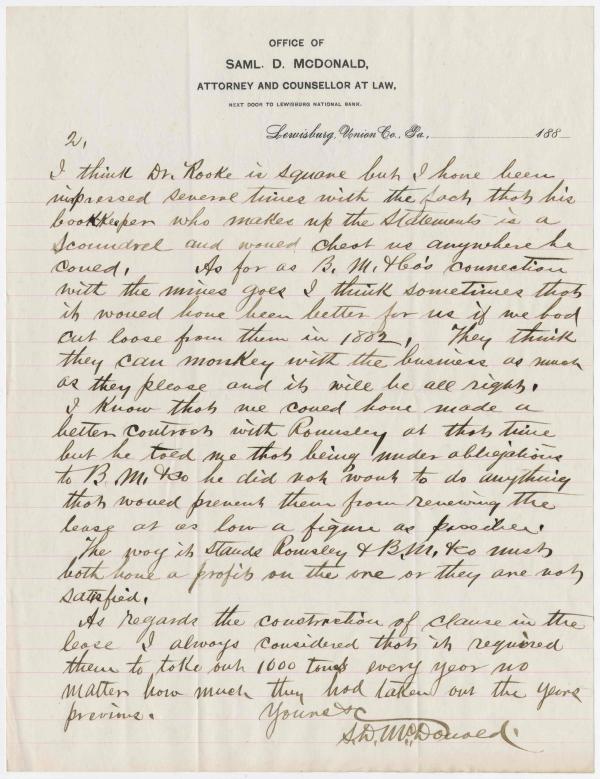 OFFICE OF
SAML. D. McDONALD,
ATTORNEY AND COUNSELLOR AT LAW,
NEXT DOOR TO LEWISBURG NATIONAL BANK.
Lewisburg, Union Co., Pa., 188
2,
I think Dr. Rooke is square but I have been
impressed several times with the fact that his
bookkeeper who makes up the statements is a
scoundrel and would cheat us anywhere he
could. As far as B. M. & Co's connection
with the mines goes I think sometimes that
it would have been better for us if we had
cut loose from them in 1882, They think
they can monkey with the business as much
as they please and it will be all right.
I know that we could have made a
better contract with Romsley at that time
but he told me that being under obligations
to B. M. & Co he did not want to do anything
that would prevent them from renewing the
lease at as low a figure as possible.
The way it stands Romsley & B. M. & Co must
both have a profit on the ore or they are not
satisfied.
As regards the construction of clause in the
lease I always considered that it required
them to take out 1000 tons every year no
matter how much they had taken out the years
previous. Yours &c
S. D. McDonald.